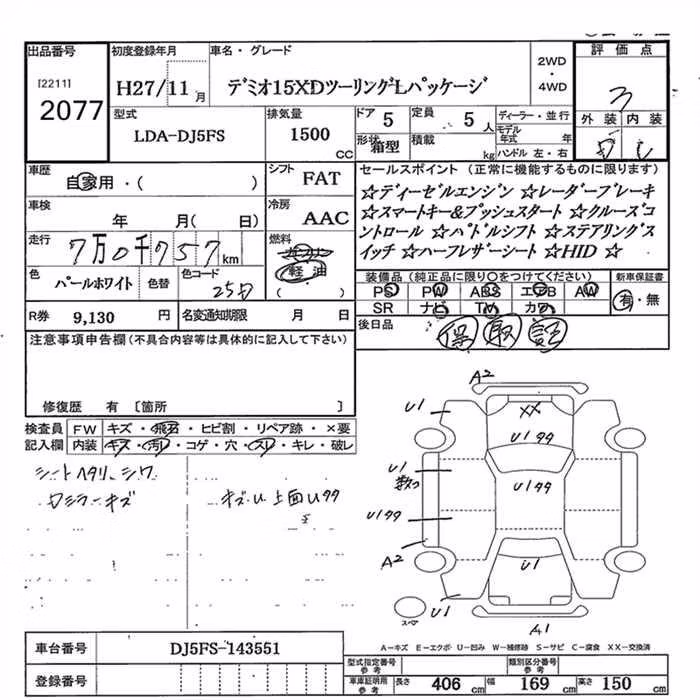 出品番号 初度登録年月 車名・グレード 2WD・4WD 評価点
[2211] 2077 H27/11月 デミオ15XDツーリングLパッケージ 3
型式 排気量 ドア 定員 ディーラー・並行 外装 内装
LDA-DJ5FS 1500 CC 5 5人 モデル年式 年
形状 箱型 積載 kg ハンドル 左・右
車歴 シフト セールスポイント (正常に機能するものに限ります)
自家用・( ) FAT ☆ディーゼルエンジン ☆レーダーブレーキ
車検 冷房 ☆スマートキー&プッシュスタート ☆クルーズコ
年 月( 日) AAC ントロール ☆パドルシフト ☆ステアリングス
走行 燃料 イッチ ☆ハーフレザーシート ☆HID ☆
7万0千757km ガソリン 軽油 ( )
色 パールホワイト 色替 色コード 25D
装備品(純正品に限り○をつけてください) 新車保証書
PS PW ABS エアB AW 有・無
SR ナビ TV カワ
R券 9,130 円 名変通知期限 月 日
後日品 保 取 記
注意事項申告欄(不具合内容等は具体的に記入して下さい)
修復歴 有 〔箇所 〕
検査員記入欄 FW キズ・飛石・ヒビ割・リペア跡・×要
内装 キズ・汚れ・コゲ・穴・スレ・キレ・破レ
シートヘタリ シワ
ミラーキズ
キズU 上面Uヲヲ
A2
U1 XX
U1ヲヲ
U1 数ヶ U1ヲヲ
U1ヲヲ
A2 U1
U1
スペア A1
A-キズ E-エクボ U-凹み W-補修跡 S-サビ C-腐食 XX-交換済
車台番号 DJ5FS-143551
登録番号
型式指定番号 参考 類別区分番号 参考
車庫証明用 参考 長さ 406cm 幅 169cm 高さ 150cm